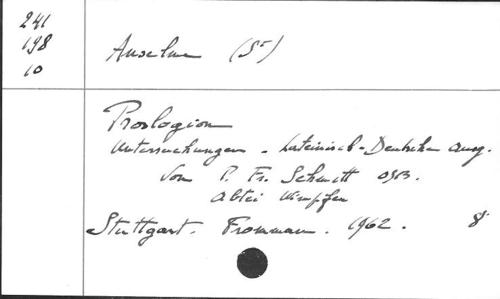 241
198
10
Anselme (St)
Proslogion
Untersuchungen - Lateinisch-Deutsche Ausg.
Von P. Fr. Schmitt OSB.
Abtei Wimpfen
Stuttgart. Fromman. 1962. 8°